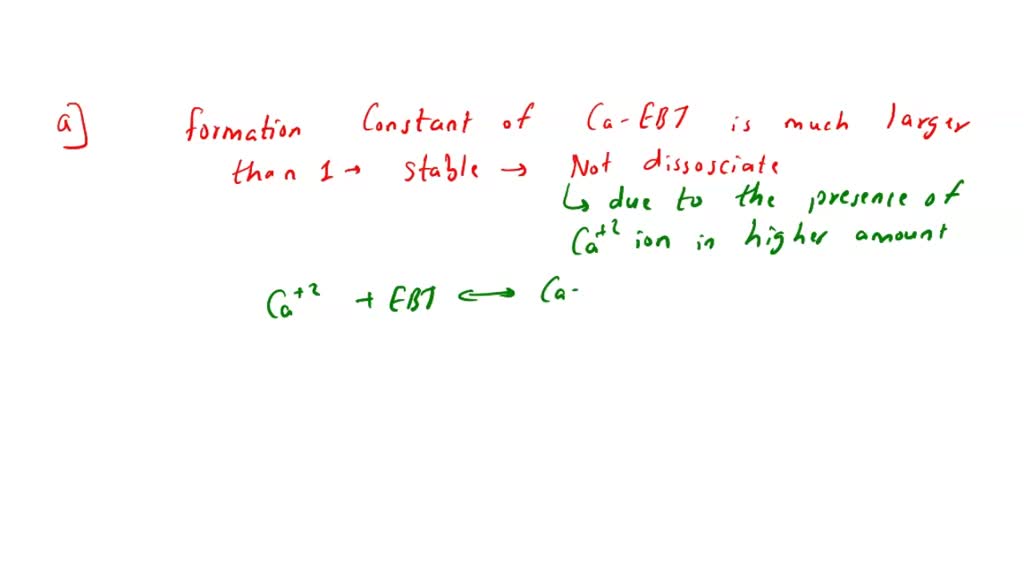 a] formation Constant of Ca-EBT is much larger
than 1 → stable → Not dissosciate
↳ due to the presence of
Ca+2 ion in higher amount
Ca+2 + EBT ⟷ Ca-